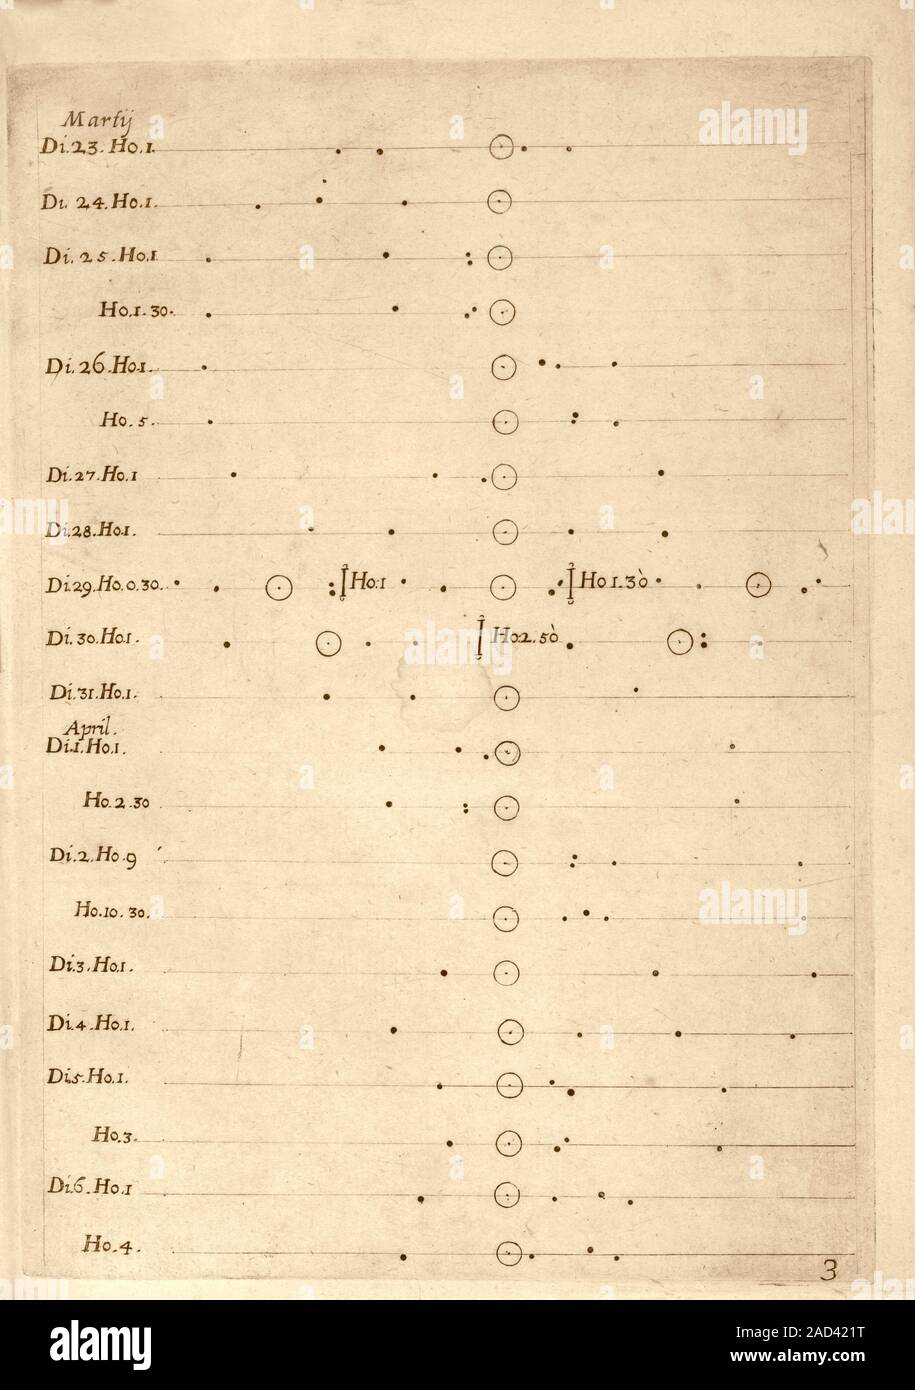 Martij
Di.23.Ho.1.
Di. 24.Ho.1.
Di. 25.Ho.1
Ho.1.30.
Di.26.Ho.1.
Ho.5.
Di.27.Ho.1
Di.28.Ho.1.
Di.29.Ho.0.30. Ho.1 Ho 1.30
Di.30.Ho.1. Ho.2.50
Di.31.Ho.1.
April.
Di.1.Ho.1.
Ho.2.30
Di.2.Ho.9
Ho.10.30.
Di.3.Ho.1.
Di.4.Ho.1.
Di.5.Ho.1.
Ho.3.
Di.6.Ho.1
Ho.4.
3
alamy
alamy
alamy
alamy
alamy
alamy
Image ID: 2AD421T
www.alamy.com